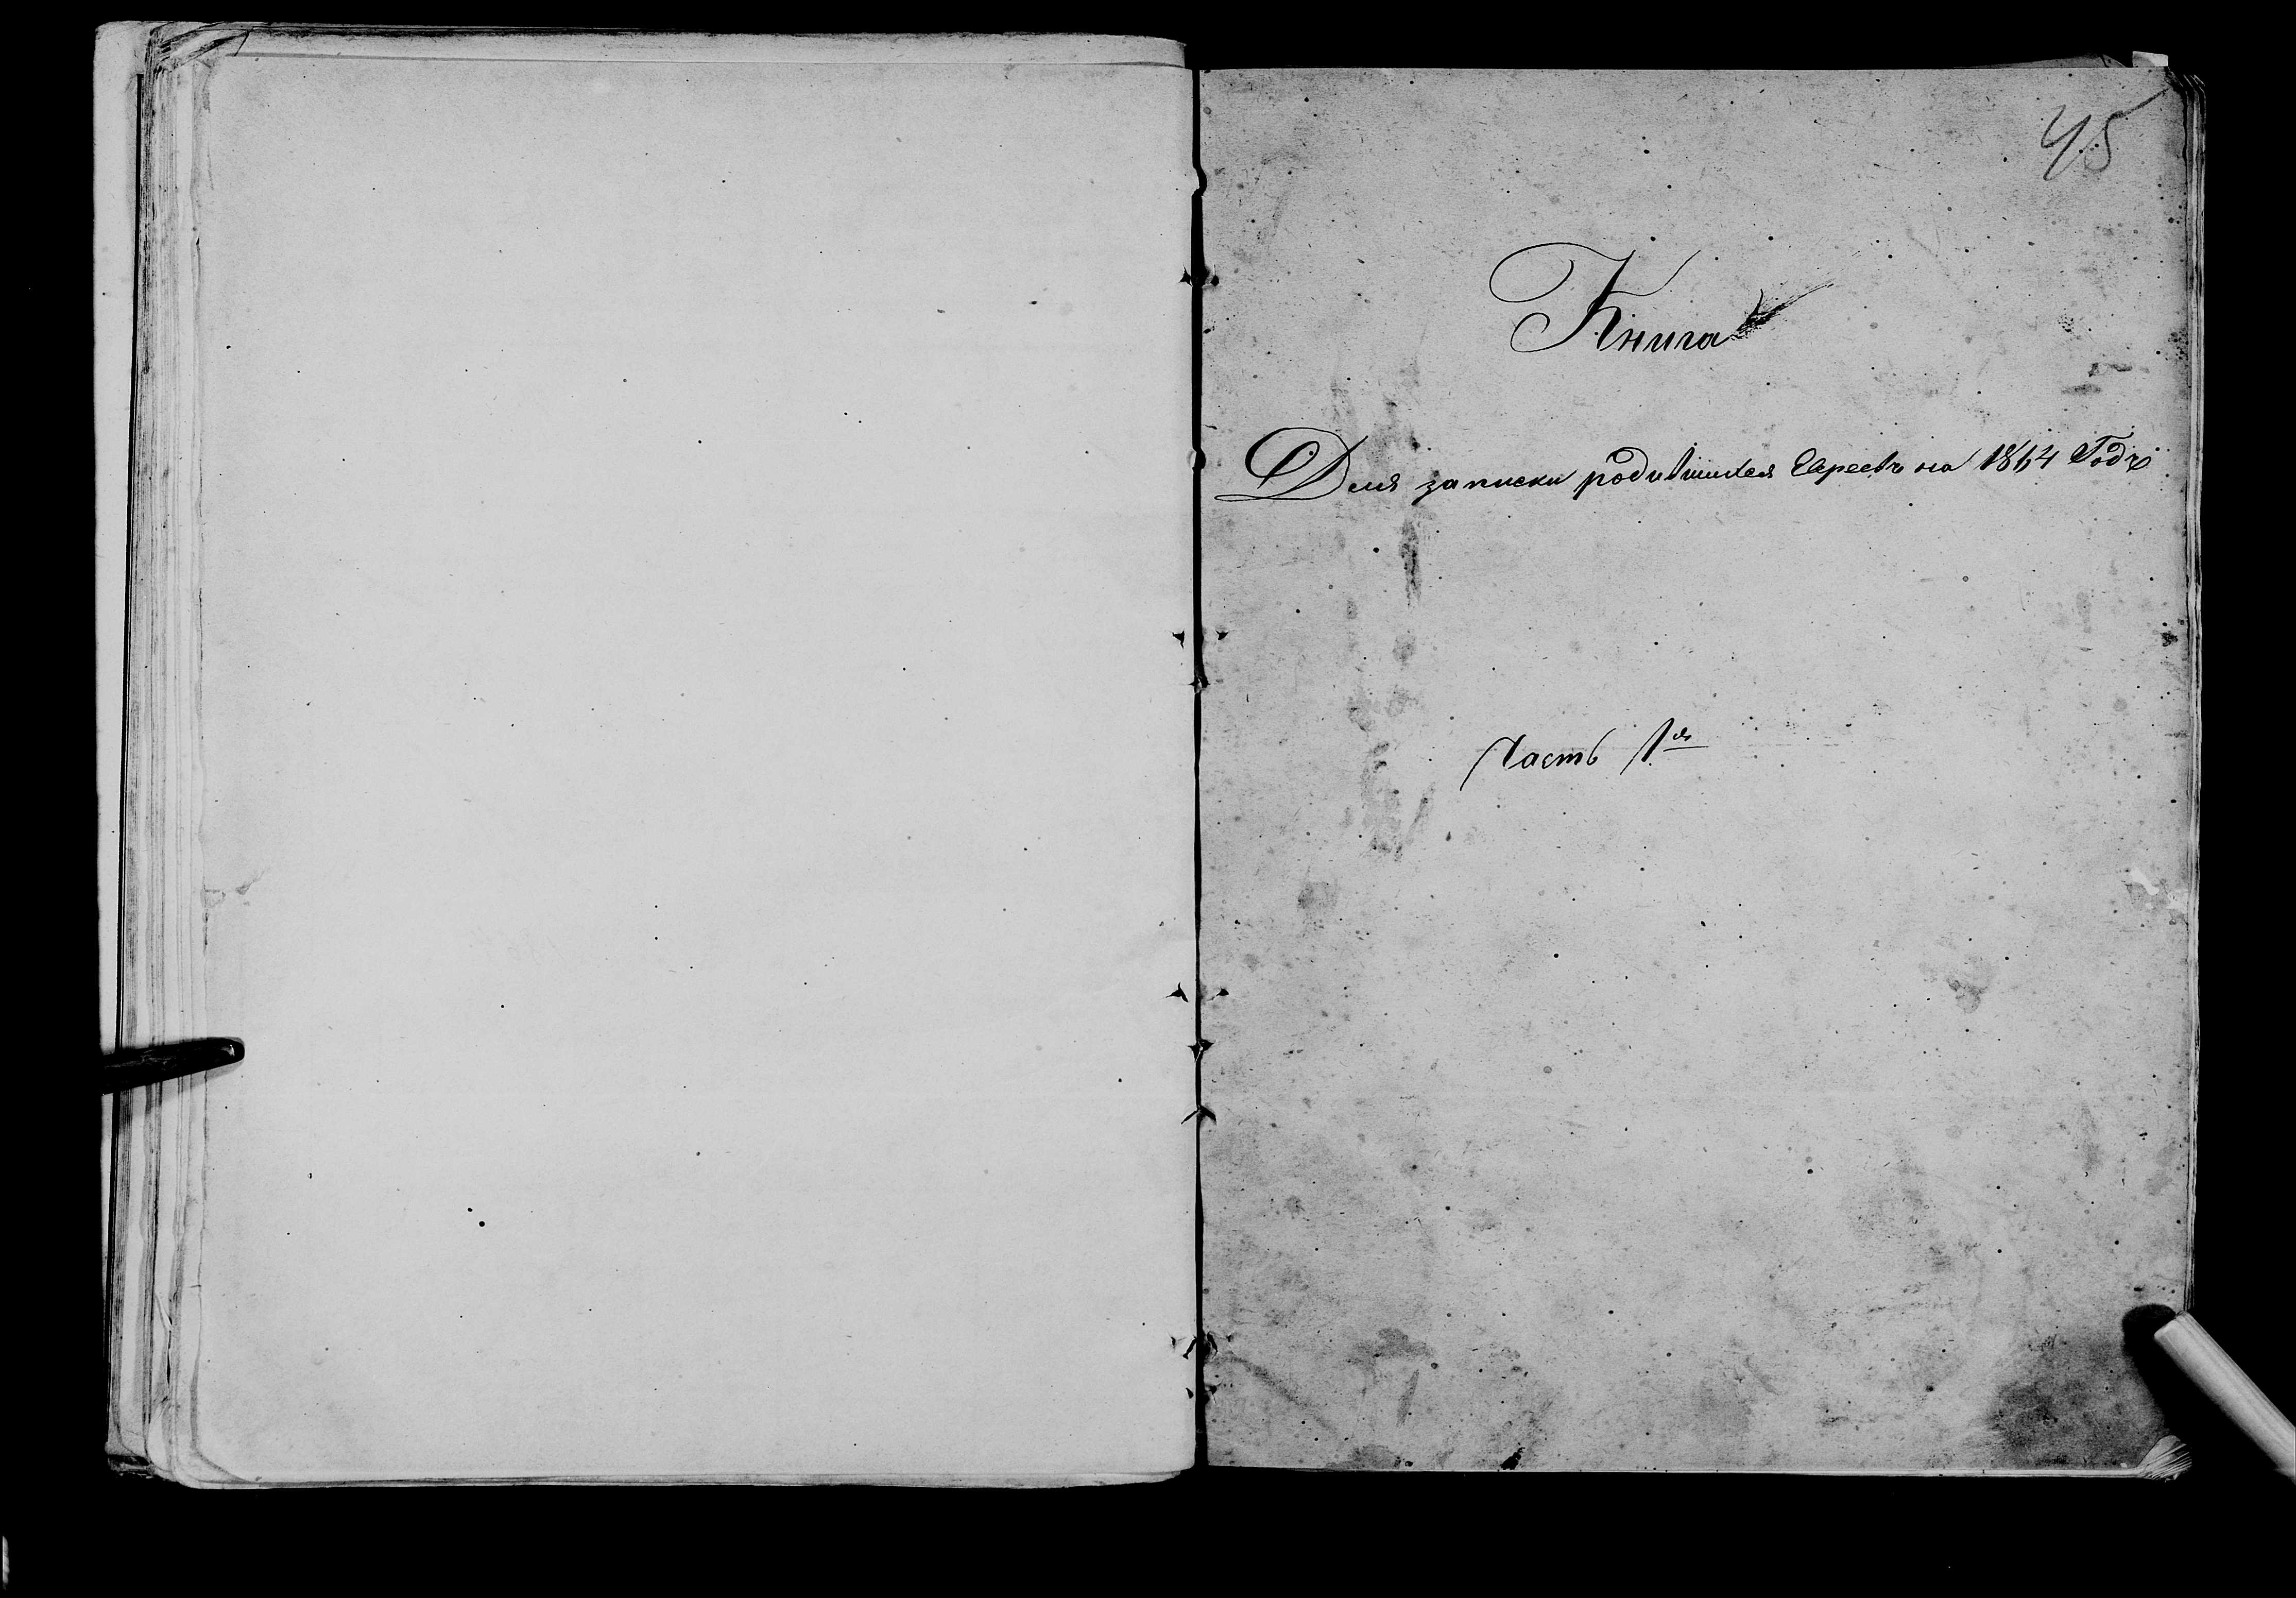 45
Книга
Для записки родившихся Евреевъ на 1864 Годъ
Часть 1я